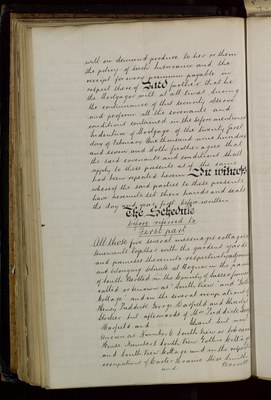 will on demand produce to her or them
the policy of such insurance and the
receipt for every premium payable in
respect thereof And further that he
the Mortgagor will at all times during
the continuance of this security observe
and perform all the covenants and
conditions contained in the before mentioned
Indenture of Mortgage of the twenty first
day of February One thousand nine hundred
and seven and doth further agree that
the said covenants and conditions shall
apply to these presents as if the same
had been repeated herein In witness
whereof the said parties to these presents
have hereunto set their hands and seals
the day and year first before written
The Schedule
before referred to
First part
All those five several messuages cottages
tenements together with the gardens yards
and premises thereunto respectively adjoining
and belonging situate at
of South in the County of Sussex
called or known as "South View" and
Cottage" and in the several occupations of
Henry Paddick George Hatfield and Charles
Stocker but afterwards of Mr Paddick
Hatfield and but now
known as Number 6 South View
House Number 5 South View Cottage
and South View Cottage and in the
occupations of Charles
and